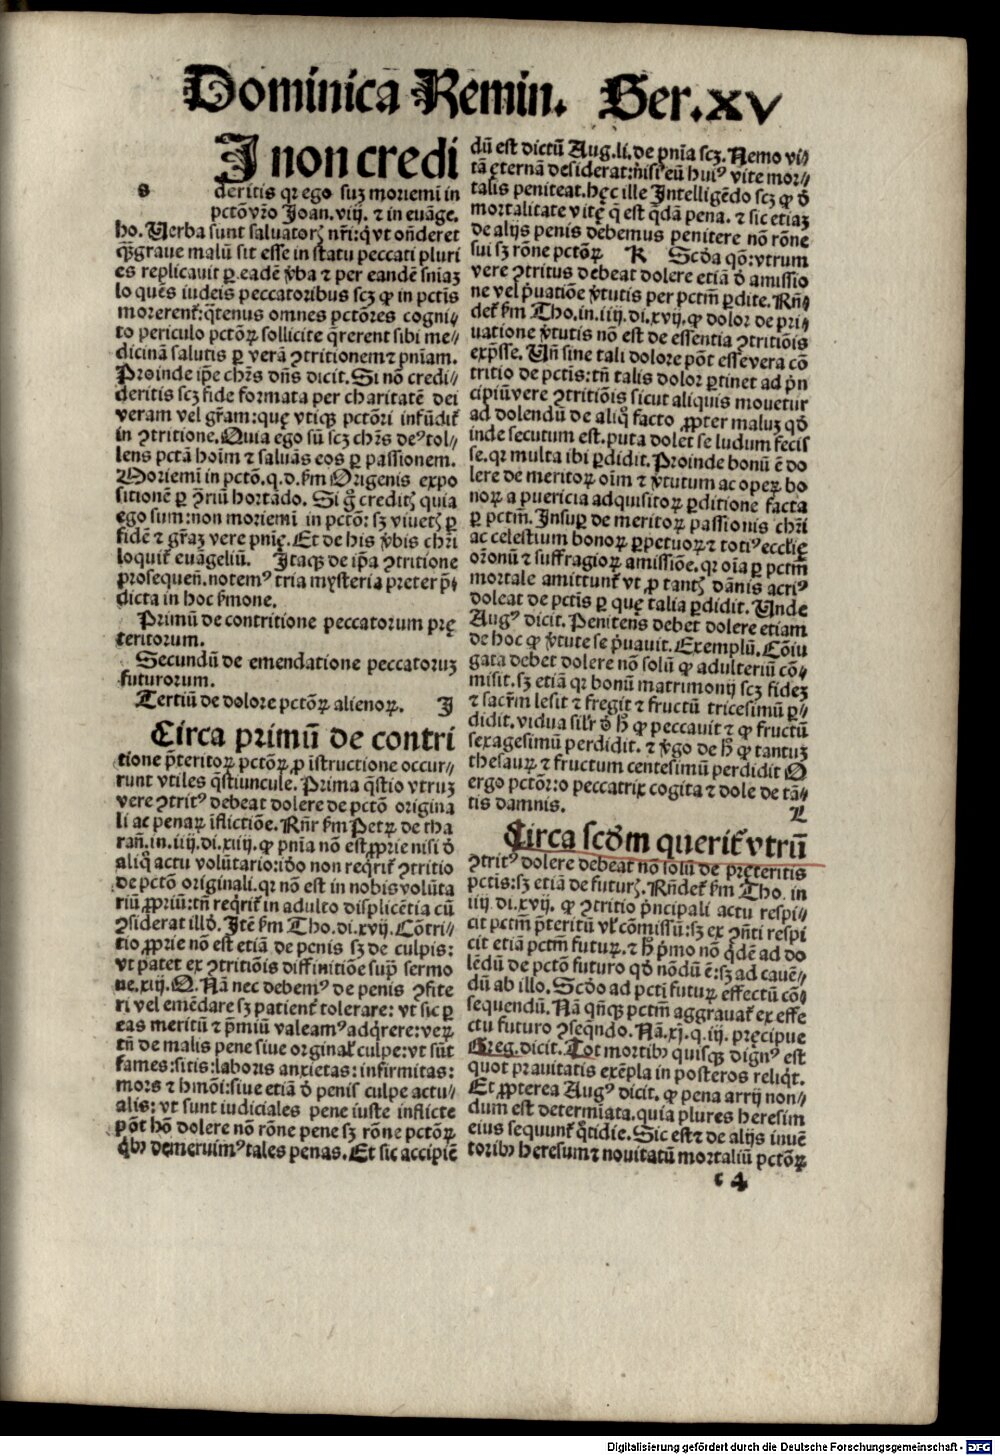 Dominica Remin. Ser.xv
I non credi
s
deritis qꝛ ego suꝫ moriemī in
pctō vr̄o Joan.viij. ⁊ in euāge.
ho. Uerba sunt saluatoꝝ nr̄i: qͥ vt oñderet
qꝫgraue malū sit esse in statu peccati pluri
es replicauit ꝑ eadē v̓ba ⁊ per eandē sniaꝫ
loquēs iudeis peccatoribus scꝫ ꝙ in pctīs
morerent᷑: qͣtenus omnes pctōres cogni⸗
to periculo pctōꝝ sollicite qͣrerent sibi me⸗
dicinā salutis ꝑ verā ꝯtritionem ⁊ pn̄iam.
Proinde ip̄e chr̄s dn̄s dicit. Si nō credi⸗
deritis scꝫ fide formata per charitatē dei
veram vel gr̄am: quę vtiqꝫ pctōri infūdit᷑
in ꝯtritione. Quia ego sū scꝫ chr̄s deꝰ tol⸗
lens pctā hoīm ⁊ saluās eos ꝑ passionem.
Moriemī in pctō. q.d. ẜm Origenis expo
sitionē ꝑ ꝯ̄riū hortādo. Si g̊ creditꝭ quia
ego sum: non moriemī in pctō: sꝫ viuetꝭ ꝑ
fidē ⁊ gr̄aꝫ vere pnīę. Et de his v̓bis chr̄i
loquit᷑ euāgeliū. Itaqꝫ de ip̄a ꝯtritione
ꝓsequen̄. notemꝰ tria mysteria preter p̄⸗
dicta in hoc ẜmone.
Primū de contritione peccatorum prę
teritorum.
Secundū de emendatione peccatoruꝫ
futurorum.
Tertiū de dolore pctōꝝ alienoꝝ. I
Circa primū de contri
tione p̄teritoꝝ pctōꝝ ꝓ īstructione occur⸗
runt vtiles qͣstiuncule. Prima qͣstio vtruꝫ
vere ꝯtritꝰ debeat dolere de pctō origina
li ac penaꝝ īflictiōe. Rn̄r ẜm Petꝝ de tha
rañ. in.iiij.di.xiiij. ꝙ pnīa nō est ꝓprie nisi ď
aliqͦ actu volūtario: iďo non reqͥrit᷑ ꝯtritio
de pctō originali. qꝛ nō est in nobis volūta
riū ꝓpriū: tn̄ reqͥrit᷑ in adulto displicētia cū
ꝯsiderat illď. Itē ẜm Tho.di.xvij. Cōtri⸗
tio ꝓprie nō est etiā de penis sꝫ de culpis:
vt patet ex ꝯtritiōis diffinitiōe supͣ sermo
ne.xiij. O. Nā nec debemꝰ de penis ꝯfite
ri vel emēdare sꝫ patient᷑ tolerare: vt sic ꝑ
eas meritū ⁊ p̄miū valeamꝰ adqͥrere: veꝝ
tn̄ de malis pene siue orginał culpe: vt sūt
fames: sitis: laboris anxietas: infirmitas:
mors ⁊ hmōi: siue etiā ď penis culpe actu⸗
alis: vt sunt iudiciales pene iuste inflicte
pōt hō dolere nō rōne pene sꝫ rōne pctōꝝ
qͥbꝰ demeruimꝰ tales penas. Et sic accipiē
dū est dictū Aug.li. de pnīa scꝫ. Nemo vi⸗
tā ęternā desiderat: nisi eū huiꝰ vite mor⸗
talis peniteat. hęc ille Intelligēdo scꝫ ꝙ ď
mortalitate vitę q̄ est qͣdā pena. ⁊ sic etiaꝫ
de alijs penis debemus penitere nō rōne
sui sꝫ rōne pctōꝝ K Scďa qō: vtrum
vere ꝯtritus debeat dolere etiā ď amissio
ne vel p̄uatiōe v̓tutis per pctm̄ ꝑdite. Rn̄
det᷑ ẜm Tho.in.iiij.di.xvij. ꝙ dolor de pri⸗
uatione v̓tutis nō est de essentia ꝯtritiōis
exp̄sse. Un̄ sine tali dolore pōt esse vera cō
tritio de pctīs: tn̄ talis dolor ꝑtinet ad p̓n
cipiū vere ꝯtritiōis sicut aliquis mouetur
ad dolendū de aliqͦ facto ꝓpter maluꝫ qď
inde secutum est. puta dolet se ludum fecis
se. qꝛ multa ibi ꝑdidit. Proinde bonū ē do
lere de meritoꝝ oīm ⁊ v̓tutum ac opeꝝ bo
noꝝ a puericia adquisitoꝝ ꝑditione facta
ꝑ pctm̄. Insuꝑ de meritoꝝ passionis chr̄i
ac celestium bonoꝝ ꝑpetuoꝝ ⁊ totiꝰ eccl̄ię
orōnū ⁊ suffragioꝝ amissiōe. qꝛ oīa ꝑ pctm̄
mortale amittunt᷑ vt ꝓ tantꝭ dānis acriꝰ
doleat de pctīs ꝑ quę talia ꝑdidit. Unde
Augꝰ dicit. Penitens debet dolere etiam
de hoc ꝙ v̓tute se p̓uauit. Exemplū. Cōiu
gata debet dolere nō solū ꝙ adulteriū cō⸗
misit. sꝫ etiā qꝛ bonū matrimonij scꝫ fideꝫ
⁊ sacrm̄ lesit ⁊ fregit ⁊ fructū tricesimū ꝑ⸗
didit. vidua sil̓r ď ħ ꝙ peccauit ⁊ ꝙ fructū
sexagesimū perdidit. ⁊ v̓go de ħ ꝙ tantuꝫ
thesauꝝ ⁊ fructum centesimū perdidit O
ergo pctōr: o peccatrix cogita ⁊ dole de tā⸗
tis damnis. L
Circa scďm querit᷑ vtrū
ꝯtritꝰ dolere debeat nō solū de pręteritis
pctis: sꝫ etiā de futurꝭ. Rn̄det᷑ ẜm Tho. in
iiij.di.xvij. ꝙ ꝯtritio p̓ncipali actu respi⸗
cit pctm̄ p̄teritū vł cōmissū: sꝫ ex ꝯn̄ti respi
cit etiā pctm̄ futuꝝ. ⁊ ħ pͥmo nō qͥdē ad do
lēdū de pctō futuro qď nōdū ē: sꝫ ad cauē⸗
dū ab illo. Scďo ad pctī futuꝝ effectū cō⸗
sequendū. Nā qn̄qꝫ pctm̄ aggrauat᷑ ex effe
ctu futuro ꝯseqn̄do. Nā.xj.q.iij. pręcipue
Greg. dicit. Tot mortibꝰ quisqꝫ dignꝰ est
quot prauitatis exēpla in posteros relīqͥt.
Et ꝓpterea Augꝰ dicit. ꝙ pena arrij non⸗
dum est determīata. quia plures heresim
eius sequunt᷑ qͦtidie. Sic est ⁊ de alijs inuē
toribꝰ heresum ⁊ nouitatū mortaliū pctōꝝ
c 4
Digitalisierung gefördert durch die Deutsche Forschungsgemeinschaft - DFG